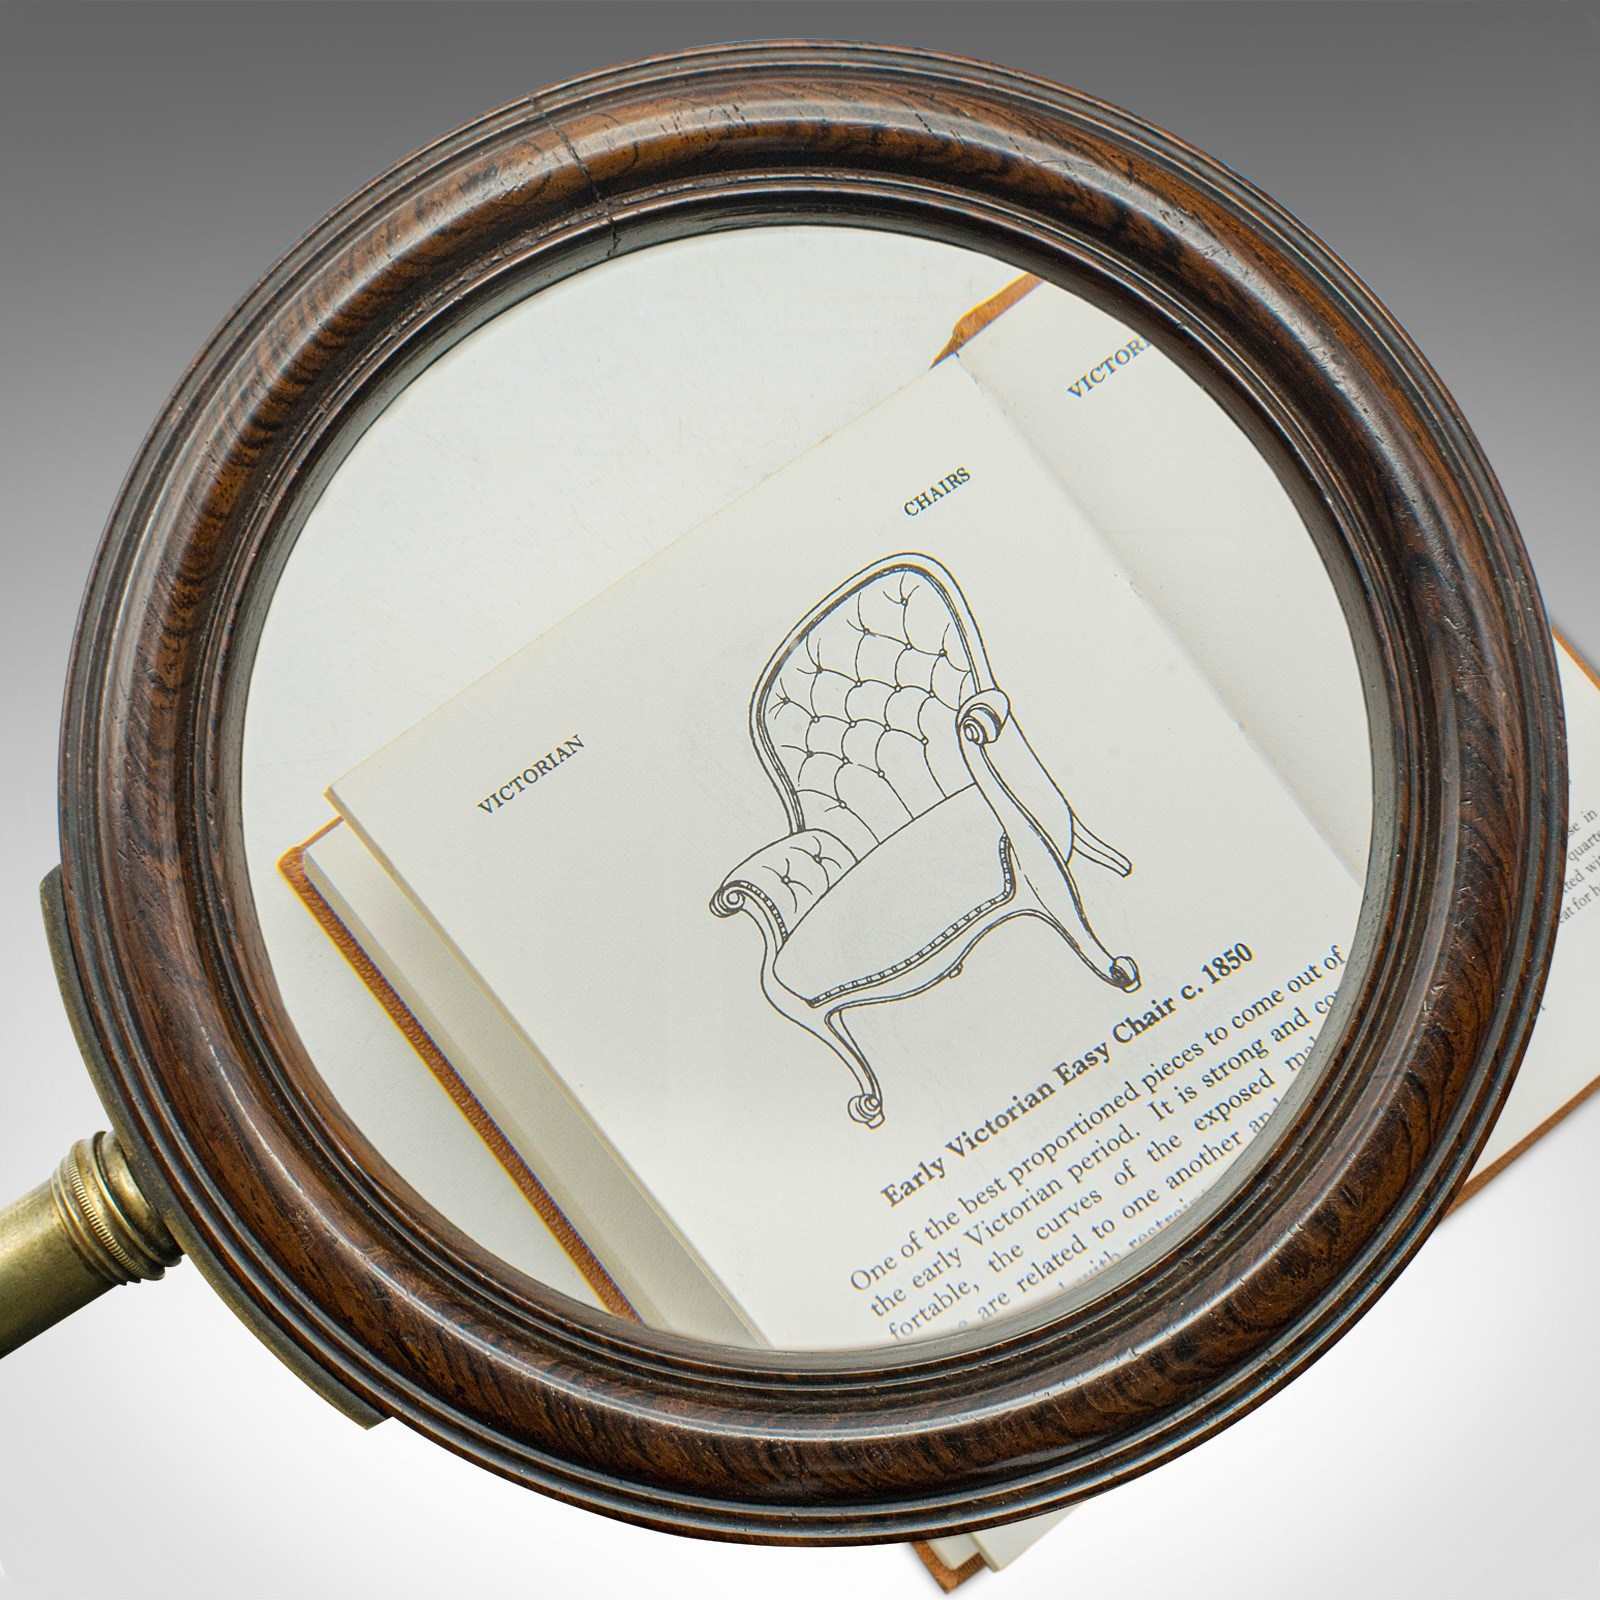 VICTORIAN CHAIRS
Early Victorian Easy Chair c. 1850
One of the best proportioned pieces to come out of
the early Victorian period. It is strong and
fortable, the curves of the exposed
are related to one another
with
VICTOR